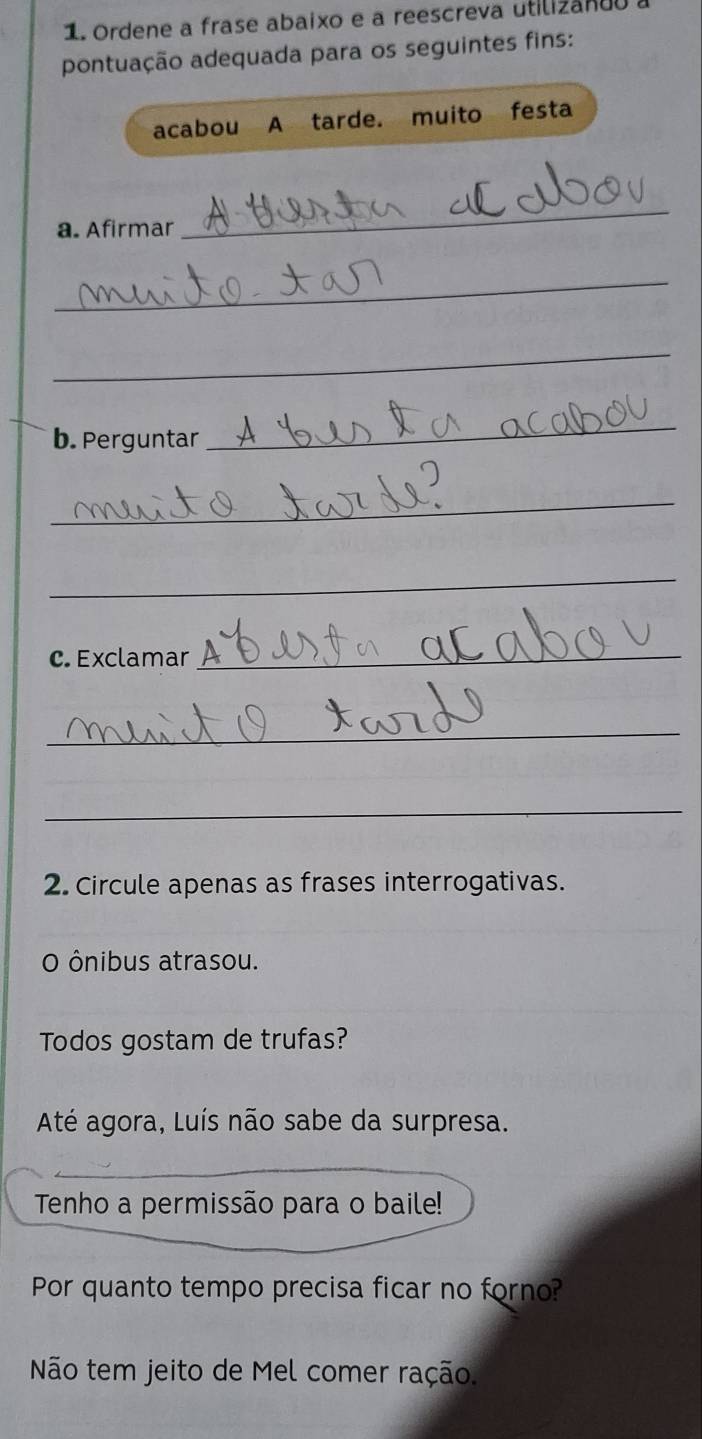 1. Ordene a frase abaixo e a reescreva utilizando a
pontuação adequada para os seguintes fins:
acabou A tarde. muito festa
a. Afirmar A festa acabou
muito tar
b. Perguntar A festa acabou
muito tarde?
c. Exclamar A festa acabou
muito tarde
2. Circule apenas as frases interrogativas.
O ônibus atrasou.
Todos gostam de trufas?
Até agora, Luís não sabe da surpresa.
Tenho a permissão para o baile!
Por quanto tempo precisa ficar no forno?
Não tem jeito de Mel comer ração.